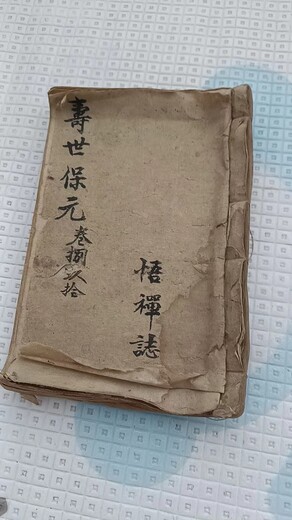 壽世保元 卷捌玖拾
悟禪誌